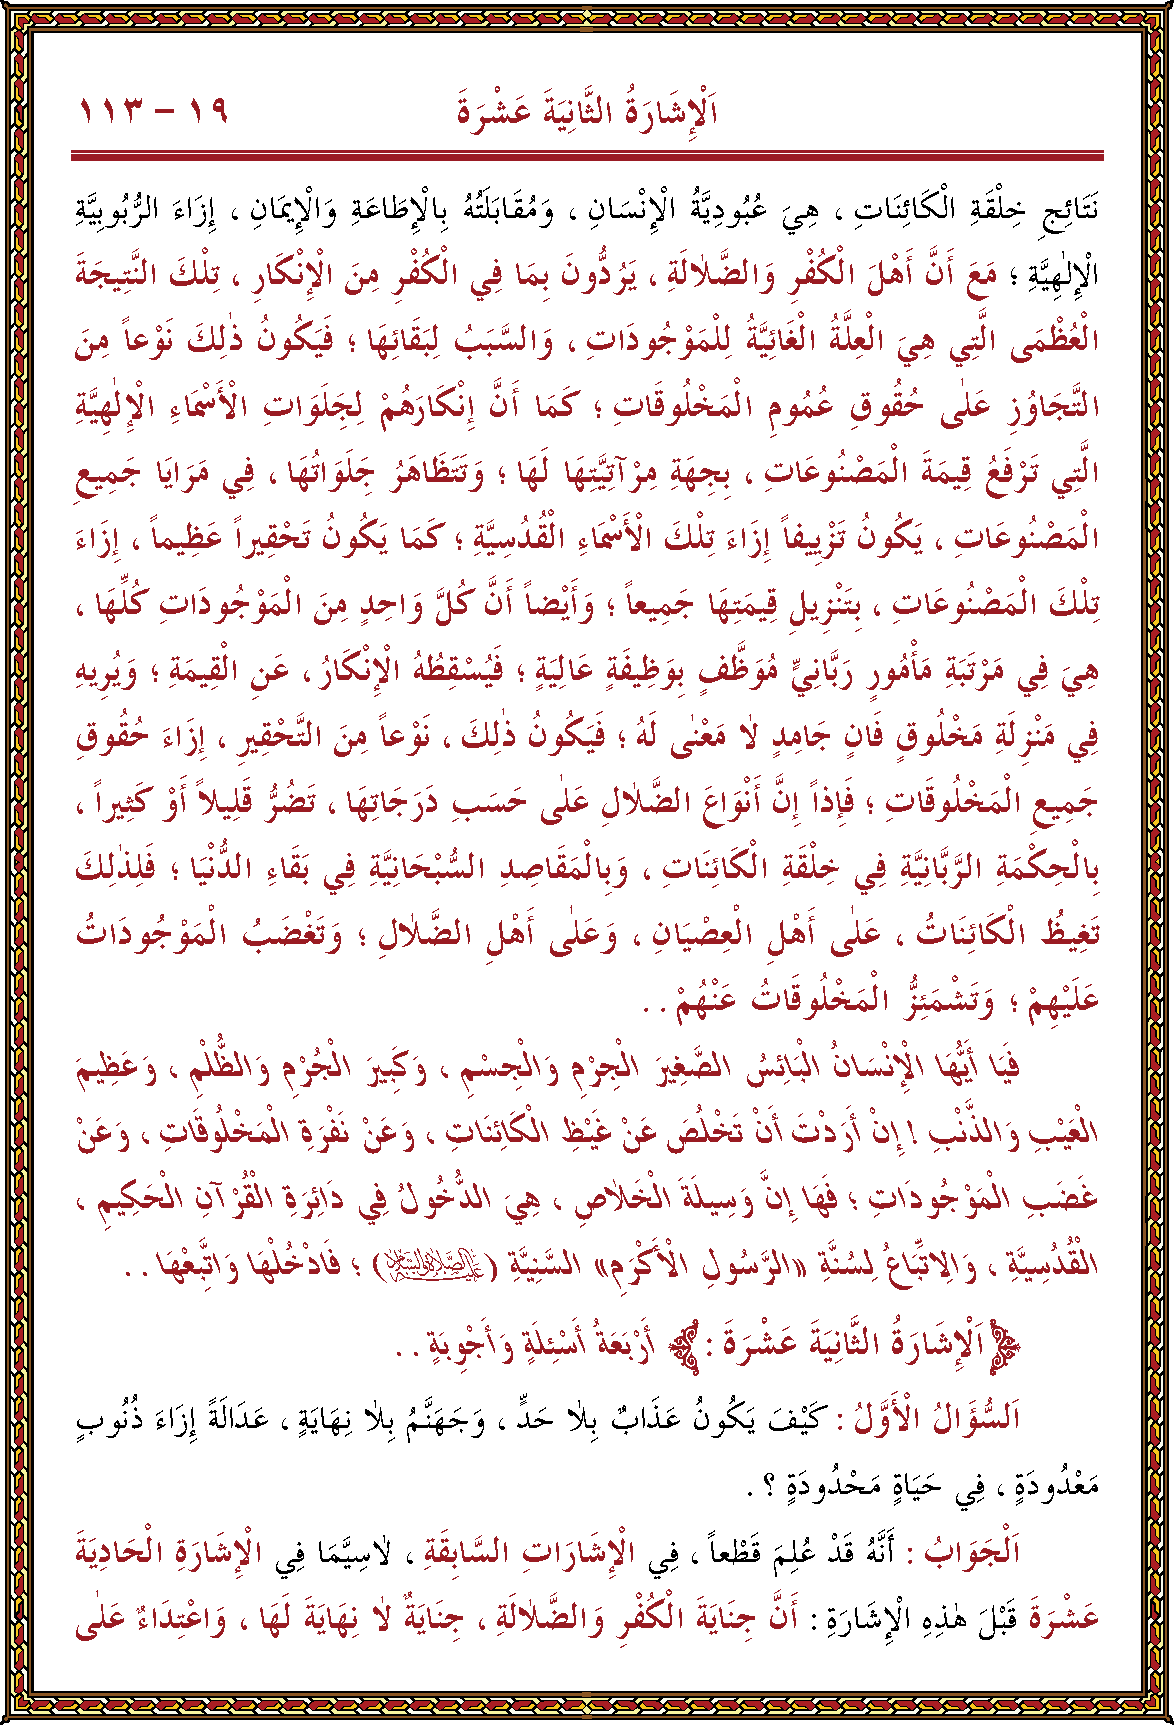 اَلْإِشَارَةُ الثَّانِيَةَ عَشْرَةَ ١٩ – ١١٣
نَتَائِجِ خِلْقَةِ الْكَائِنَاتِ ، هِيَ عُبُودِيَّةُ الْإِنْسَانِ ، وَمُقَابَلَتُهُ بِالْإِطَاعَةِ وَالْإِيمَانِ ، إِزَاءَ الرُّبُوبِيَّةِ
الْإِلٰهِيَّةِ ؛ مَعَ أَنَّ أَهْلَ الْكُفْرِ وَالضَّلَالَةِ ، يَرُدُّونَ بِمَا فِي الْكُفْرِ مِنَ الْإِنْكَارِ ، تِلْكَ النَّتِيجَةَ
الْعُظْمَى الَّتِي هِيَ الْعِلَّةُ الْغَائِيَّةُ لِلْمَوْجُودَاتِ ، وَالسَّبَبُ لِبَقَائِهَا ؛ فَيَكُونُ ذٰلِكَ نَوْعاً مِنَ
التَّجَاوُزِ عَلٰى حُقُوقِ عُمُومِ الْمَخْلُوقَاتِ ؛ كَمَا أَنَّ إِنْكَارَهُمْ لِجَلَوَاتِ الْأَسْمَاءِ الْإِلٰهِيَّةِ
الَّتِي تَرْفَعُ قِيمَةَ الْمَصْنُوعَاتِ ، بِجِهَةِ مِرْآتِيَّتِهَا لَهَا ؛ وَتَتَظَاهَرُ جَلَوَاتُهَا ، فِي مَرَايَا جَمِيعِ
الْمَصْنُوعَاتِ ، يَكُونُ تَزْيِيفاً إِزَاءَ تِلْكَ الْأَسْمَاءِ الْقُدُسِيَّةِ ؛ كَمَا يَكُونُ تَحْقِيراً عَظِيماً ، إِزَاءَ
تِلْكَ الْمَصْنُوعَاتِ ، بِتَنْزِيلِ قِيمَتِهَا جَمِيعاً ؛ وَأَيْضاً أَنَّ كُلَّ وَاحِدٍ مِنَ الْمَوْجُودَاتِ كُلِّهَا ،
هِيَ فِي مَرْتَبَةِ مَأْمُورٍ رَبَّانِيٍّ مُوَظَّفٍ بِوَظِيفَةٍ عَالِيَةٍ ؛ فَيُسْقِطُهُ الْإِنْكَارُ ، عَنِ الْقِيمَةِ ؛ وَيُرِيهِ
فِي مَنْزِلَةِ مَخْلُوقٍ فَانٍ جَامِدٍ لَا مَعْنٰى لَهُ ؛ فَيَكُونُ ذٰلِكَ ، نَوْعاً مِنَ التَّحْقِيرِ ، إِزَاءَ حُقُوقِ
جَمِيعِ الْمَخْلُوقَاتِ ؛ فَإِذاً إِنَّ أَنْوَاعَ الضَّلَالِ عَلٰى حَسَبِ دَرَجَاتِهَا ، تَضُرُّ قَلِيلاً أَوْ كَثِيراً ،
بِالْحِكْمَةِ الرَّبَّانِيَّةِ فِي خِلْقَةِ الْكَائِنَاتِ ، وَبِالْمَقَاصِدِ السُّبْحَانِيَّةِ فِي بَقَاءِ الدُّنْيَا ؛ فَلِذٰلِكَ
تَغِيظُ الْكَائِنَاتُ ، عَلٰى أَهْلِ الْعِصْيَانِ ، وَعَلٰى أَهْلِ الضَّلَالِ ؛ وَتَغْضَبُ الْمَوْجُودَاتُ
عَلَيْهِمْ ؛ وَتَشْمَئِزُّ الْمَخْلُوقَاتُ عَنْهُمْ . .
فَيَا أَيُّهَا الْإِنْسَانُ الْبَائِسُ الصَّغِيرَ الْجِرْمِ وَالْجِسْمِ ، وَكَبِيرَ الْجُرْمِ وَالظُّلْمِ ، وَعَظِيمَ
الْعَيْبِ وَالذَّنْبِ ! إِنْ أَرَدْتَ أَنْ تَخْلُصَ عَنْ غَيْظِ الْكَائِنَاتِ ، وَعَنْ نَفْرَةِ الْمَخْلُوقَاتِ ، وَعَنْ
غَضَبِ الْمَوْجُودَاتِ ؛ فَهَا إِنَّ وَسِيلَةَ الْخَلَاصِ ، هِيَ الدُّخُولُ فِي دَائِرَةِ الْقُرْآنِ الْحَكِيمِ ،
الْقُدْسِيَّةِ ، وَالِاتِّبَاعُ لِسُنَّةِ «الرَّسُولِ الْأَكْرَمِ» السَّنِيَّةِ (عَلَيْهِ الصَّلَاةُ وَالسَّلَامُ) ؛ فَادْخُلْهَا وَاتَّبِعْهَا . .
﴿اَلْإِشَارَةُ الثَّانِيَةَ عَشْرَةَ : ﴾ أَرْبَعَةُ أَسْئِلَةٍ وَأَجْوِبَةٍ . .
اَلسُّؤَالُ الْأَوَّلُ : كَيْفَ يَكُونُ عَذَابٌ بِلَا حَدٍّ ، وَجَهَنَّمُ بِلَا نِهَايَةٍ ، عَدَالَةً إِزَاءَ ذُنُوبٍ
مَعْدُودَةٍ ، فِي حَيَاةٍ مَحْدُودَةٍ ؟ .
اَلْجَوَابُ : أَنَّهُ قَدْ عُلِمَ قَطْعاً ، فِي الْإِشَارَاتِ السَّابِقَةِ ، لَاسِيَّمَا فِي الْإِشَارَةِ الْحَادِيَةَ
عَشْرَةَ قَبْلَ هٰذِهِ الْإِشَارَةِ : أَنَّ جِنَايَةَ الْكُفْرِ وَالضَّلَالَةِ ، جِنَايَةٌ لَا نِهَايَةَ لَهَا ، وَاعْتِدَاءٌ عَلٰى